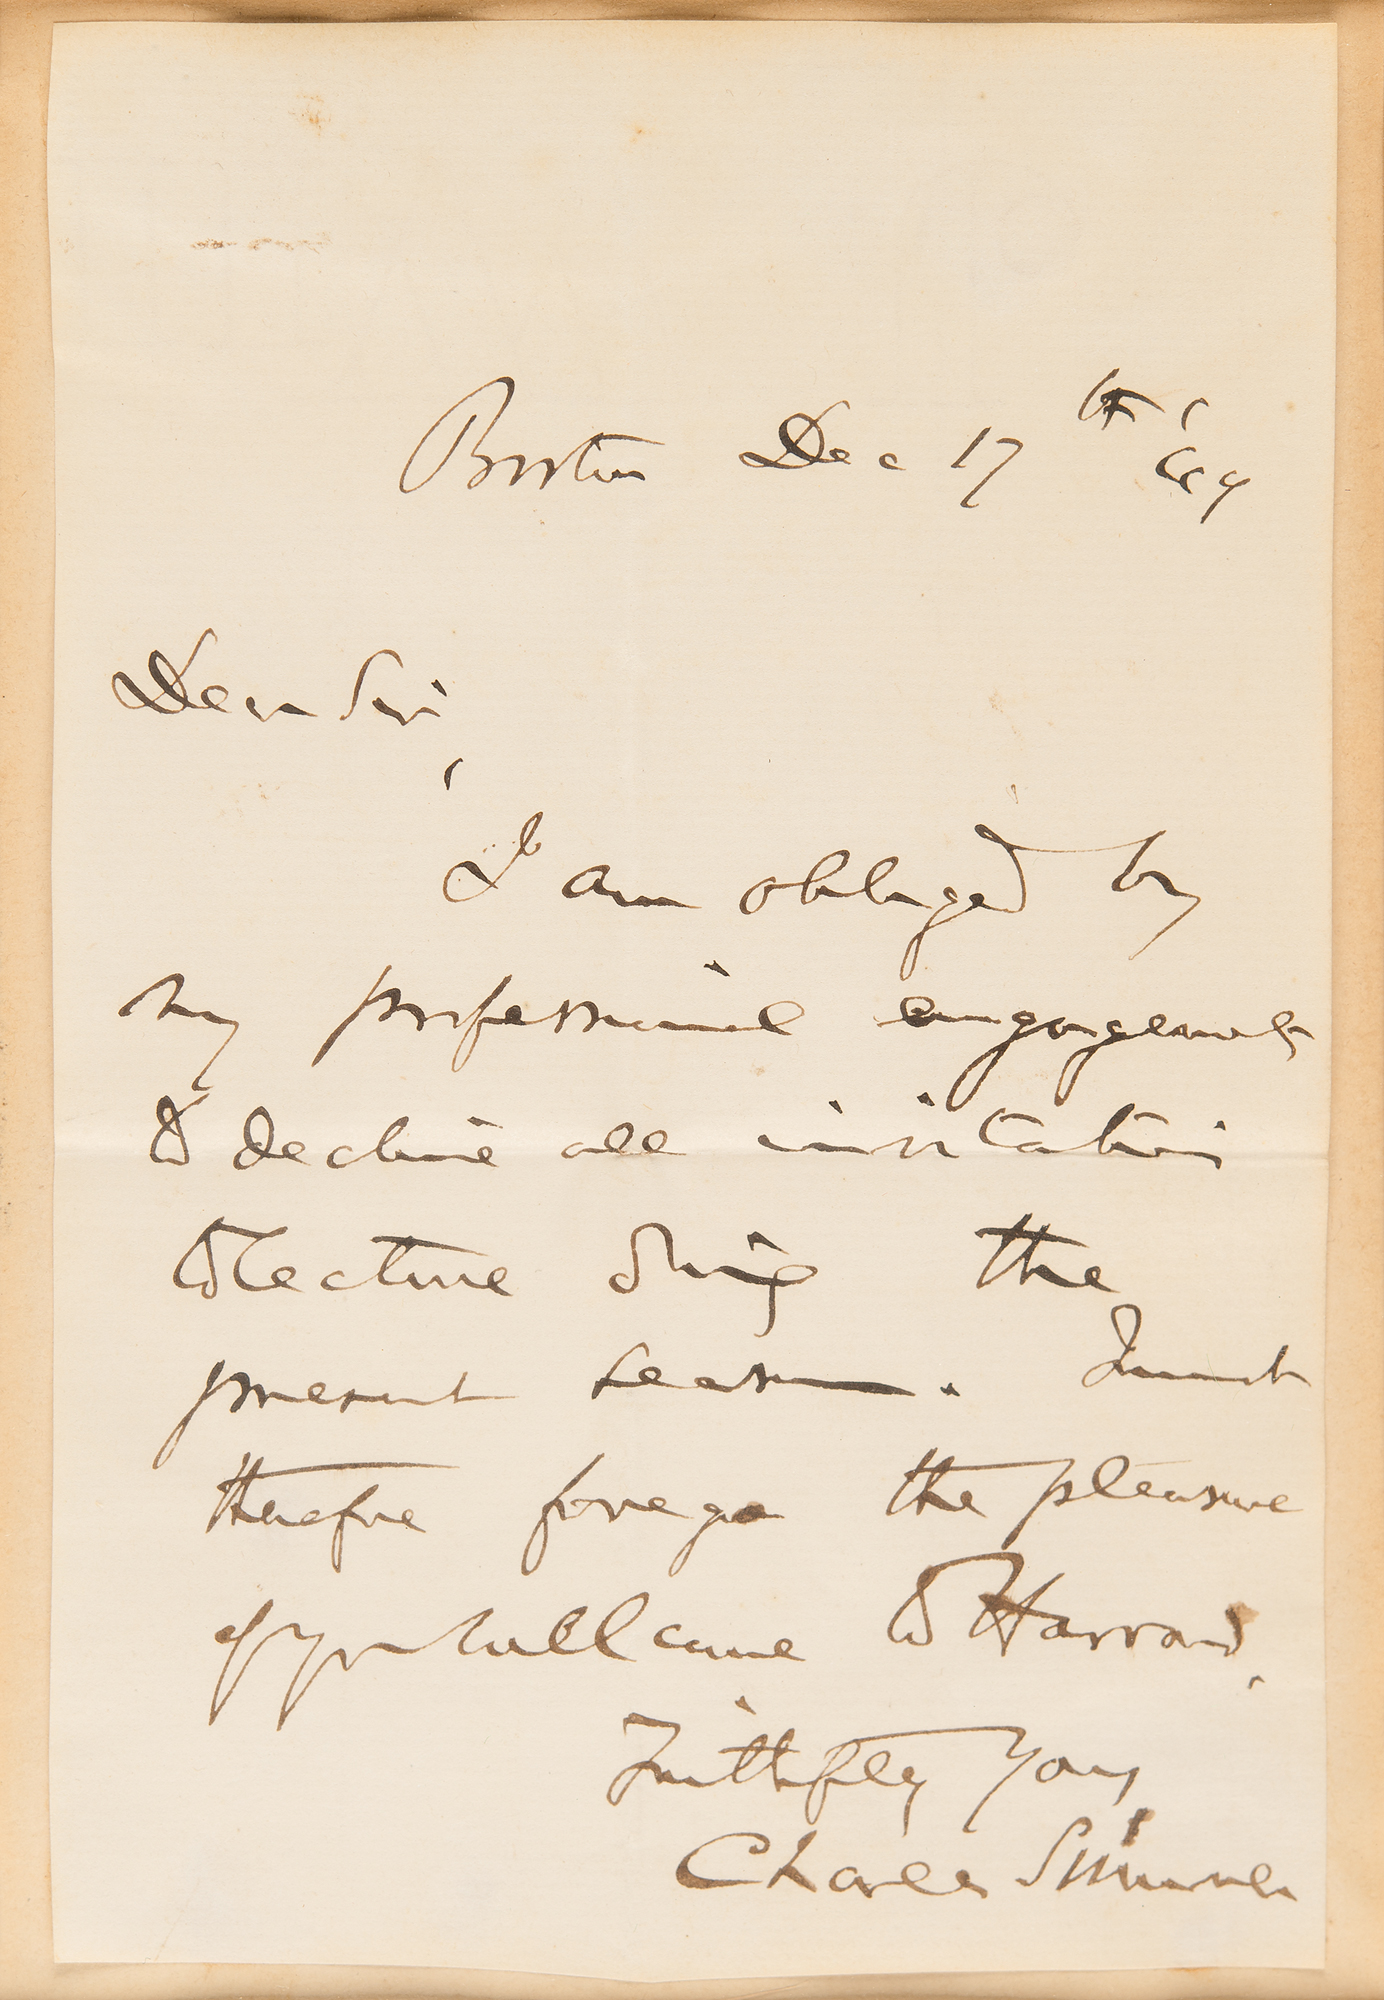 Boston Dec 17th '49
Dear Sir,
I am obliged by
my professional engagements
to decline all invitations
to lecture during the
present season. I must
therefore forego the pleasure
of yr welcome to Harvard,
Faithfully Yours,
Charles Sumner